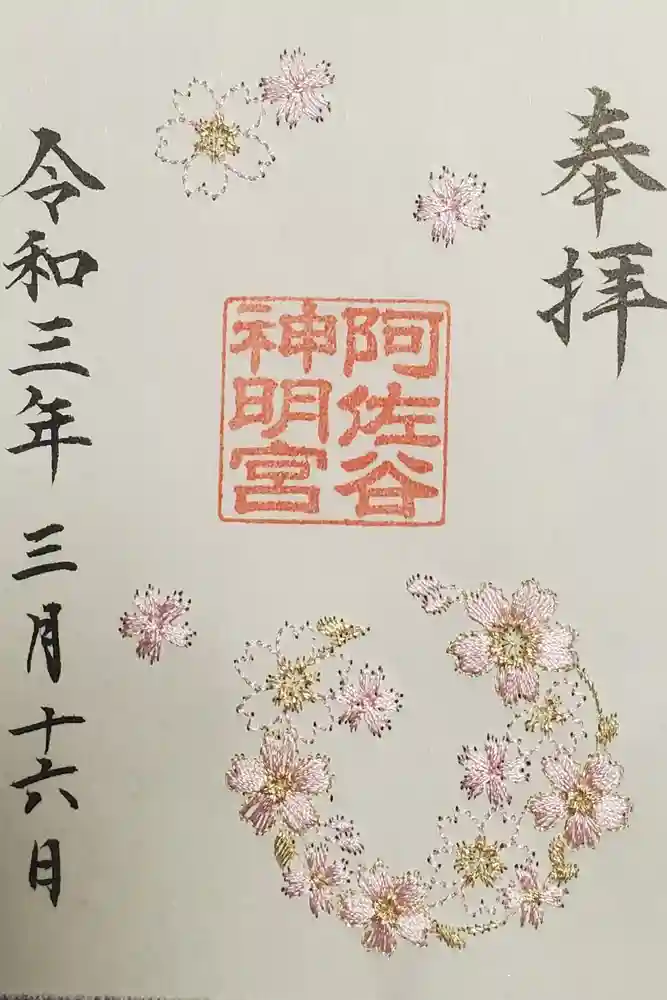 奉拝
阿佐谷
神明宮
令和三年三月十六日